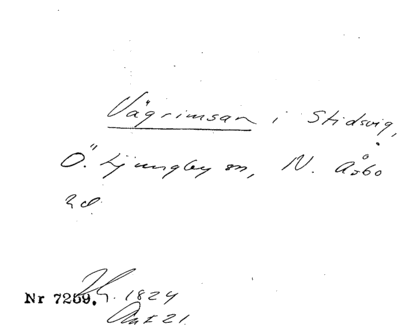 Vägrimsan i Stidsvig,
Ö. Ljungby sn, N. Åsbo
hd.
Nr 7209. 1824